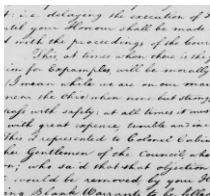 t: i.e. delaying the execution of
until your Honour shall be made
with the proceedings of the Cour
This, at times when there is the
for Examples will be morally
(I mean while we are on our mar
the third when none but strange
pass with safety; at all times it mus
with great expence, trouble an
This I represented to Colonel
the Gentlemen of the Council, wh
n; who said that objection
would be removed by
ing Blank Warrants to be